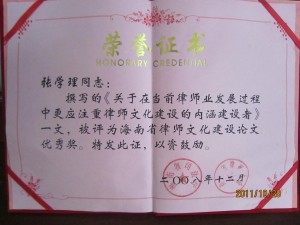 荣誉证书
HONORARY CREDENTIAL
张学理同志：
撰写的《关于在当前律师业发展过程
中更应注重律师文化建设的内涵建设者》
一文，被评为海南省律师文化建设论文
优秀奖。特发此证，以资鼓励。
二〇〇八年十二月